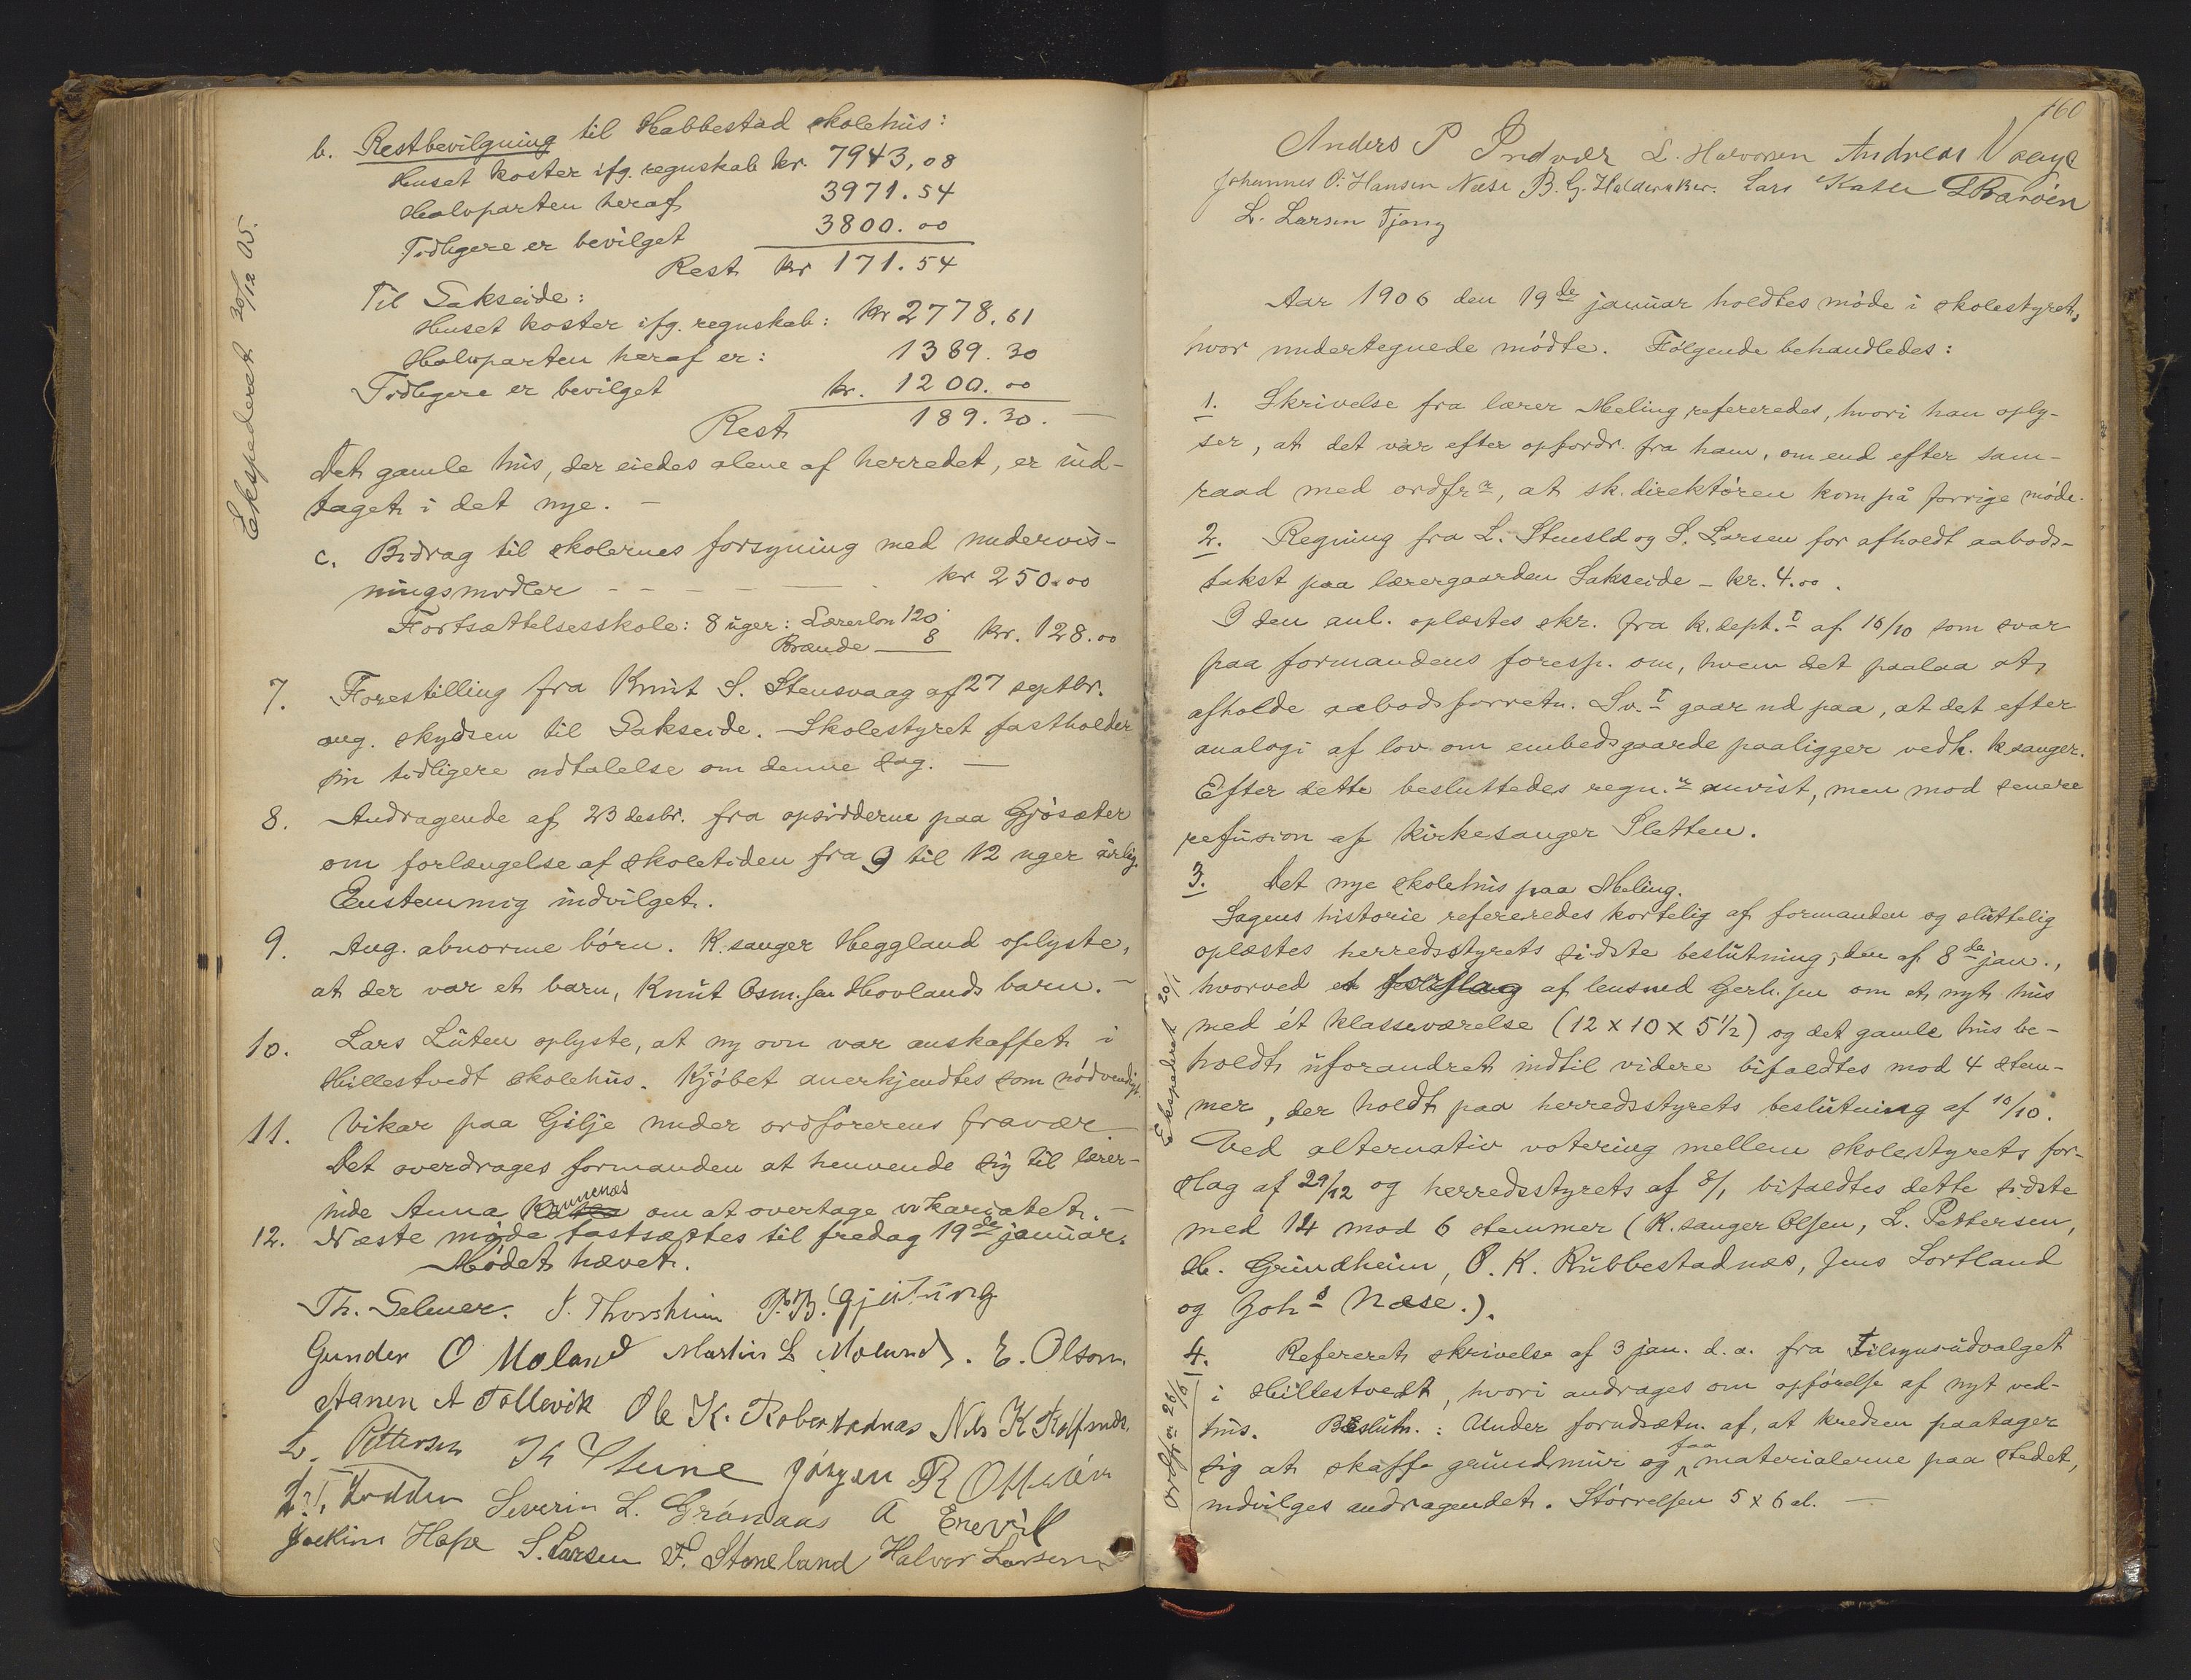 b. Restbevilgning til Habbestad skolehus:
Huset koster ifg. regnskab kr. 7943,08
Halvparten heraf 3971.54
Tidligere er bevilget 3800.00
Rest kr 171.54
Til Sakseide:
Huset koster ifg. regnskab: kr 2778.61
Halvparten heraf er: 1389.30
Tidligere er bevilget kr. 1200.00
Rest 189.30. —
Det gamle hus, der eiedes alene af herredet, er ind-
taget i det nye. —
c. Bidrag til skolernes forsyning med undervis-
ningsmidler - - - - kr 250.00
Fortsættelsesskole: 8 uger: Lærerløn 120
Brænde 8 kr. 128.00
7. Forestilling fra Knut S. Stensvaag af 27 septbr.
ang. skydsen til Sakseide. Skolestyret fastholder
sin tidligere udtalelse om denne sag. —
8. Andragende af 23 desbr. fra opsidderne paa Gjøsæter
om forlængelse af skoletiden fra 9 til 12 uger årlig.
Enstemmig indvilget.
9. Ang. abnorme børn. K.sanger Heggland oplyste,
at der var et barn, Knut Osm.sen Hovlands barn. —
10. Lars Luten oplyste, at ny ovn var anskaffet i
Hillestvedt skolehus. Kjøbet anerkjendtes som nødvendigt.
11. Vikar paa Gilje under ordførerens fravær.
Det overdrages formanden at henvende sig til lærer-
inde Anna Kinnenæs om at overtage vikariatet. —
12. Næste møde fastsættes til fredag 19de januar.
Mødet hævet.
Th. Selmer. J. Thorsheim P. B. Gjeitung
Gunder O Møland Martin L Molund. E. Olson.
Hanen A Tollevik Ole K. Robbestadnæs Nils K Rolfsnæs.
L. Pettersen Th Steine Jørgen R Ottesen
L. T. Lodden Severin L. Grønaas A Erevik
Joakim Hope S. Larsen F. Stoneland Halvor Larsen
Ekspederet 30/12 05.
160
Anders P Indvær L. Halvorsen Andreas Vaage
Johannes O. Hansen Næse B. G. Halderaker. Lars Katle L Barøen
L. Larsen Tjong
Aar 1906 den 19de januar holdtes møde i skolestyret,
hvor undertegnede mødte. Følgende behandledes:
1. Skrivelse fra lærer Meling refereredes, hvori han oply-
ser, at det var efter opfordr. fra ham, om end efter sam-
raad med ordfr r, at sk.direktøren kom på forrige møde.
2. Regning fra L. Stuesld og S. Larsen for afholdt aabods-
takst paa lærergaarden Sakseide - kr. 4.00.
I den anl. oplæstes skr. fra k.dept. t af 16/10 som svar
paa formandens foresp. om, hvem det paalaa at
afholde aabodsforretn. Sv. t gaar ud paa, at det efter
analogi af lov om embedsgaarde paaligger vedk. k.sanger.
Efter dette besluttedes regn. n anvist, men mod senere
refusion af kirkesanger Sletten.
3. Det nye skolehus paa Meling.
Sagens historie refereredes kortelig af formanden og sluttelig
oplæstes herredsstyrets sidste beslutning, den af 8de jan.,
hvorved et forslag af lensmd Gerh.sen om et nyt hus
med ét klasseværelse (12 x 10 x 5 1/2) og det gamle hus be-
holdt uforandret indtil videre bifaldtes mod 4 stem-
mer, der holdt paa herredsstyrets beslutning af 10/10.
Ved alternativ votering mellem skolestyrets for-
slag af 29/12 og herredsstyrets af 8/1 bifaldtes dette sidste
med 14 mod 6 stemmer (K.sanger Olsen, L. Pettersen,
H. Grindheim, O. K. Rubbestadnæs, Jens Sortland
og Joh s Næse.).
4. Refereret skrivelse af 3 jan. d.a. fra tilsynsudvalget
i Hillestvedt, hvori andrages om opførelse af nyt ved-
hus. Beslutn.: Under forudsætn. af, at kredsen paatager
sig at skaffe grundmur og faa materialerne paa stedet,
indvilges andragendet. Størrelsen 5 x 6 al. —
Ekspederet 20/1
Ordfr n 26/1 6